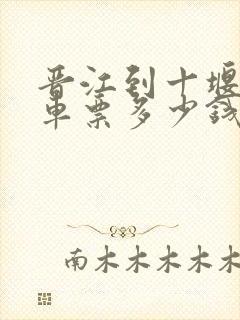 晋江到十堰
车票多少钱
南木木木木